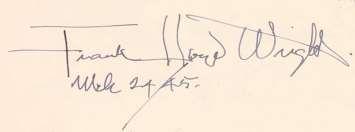 Frank Lloyd Wright.
24 45.